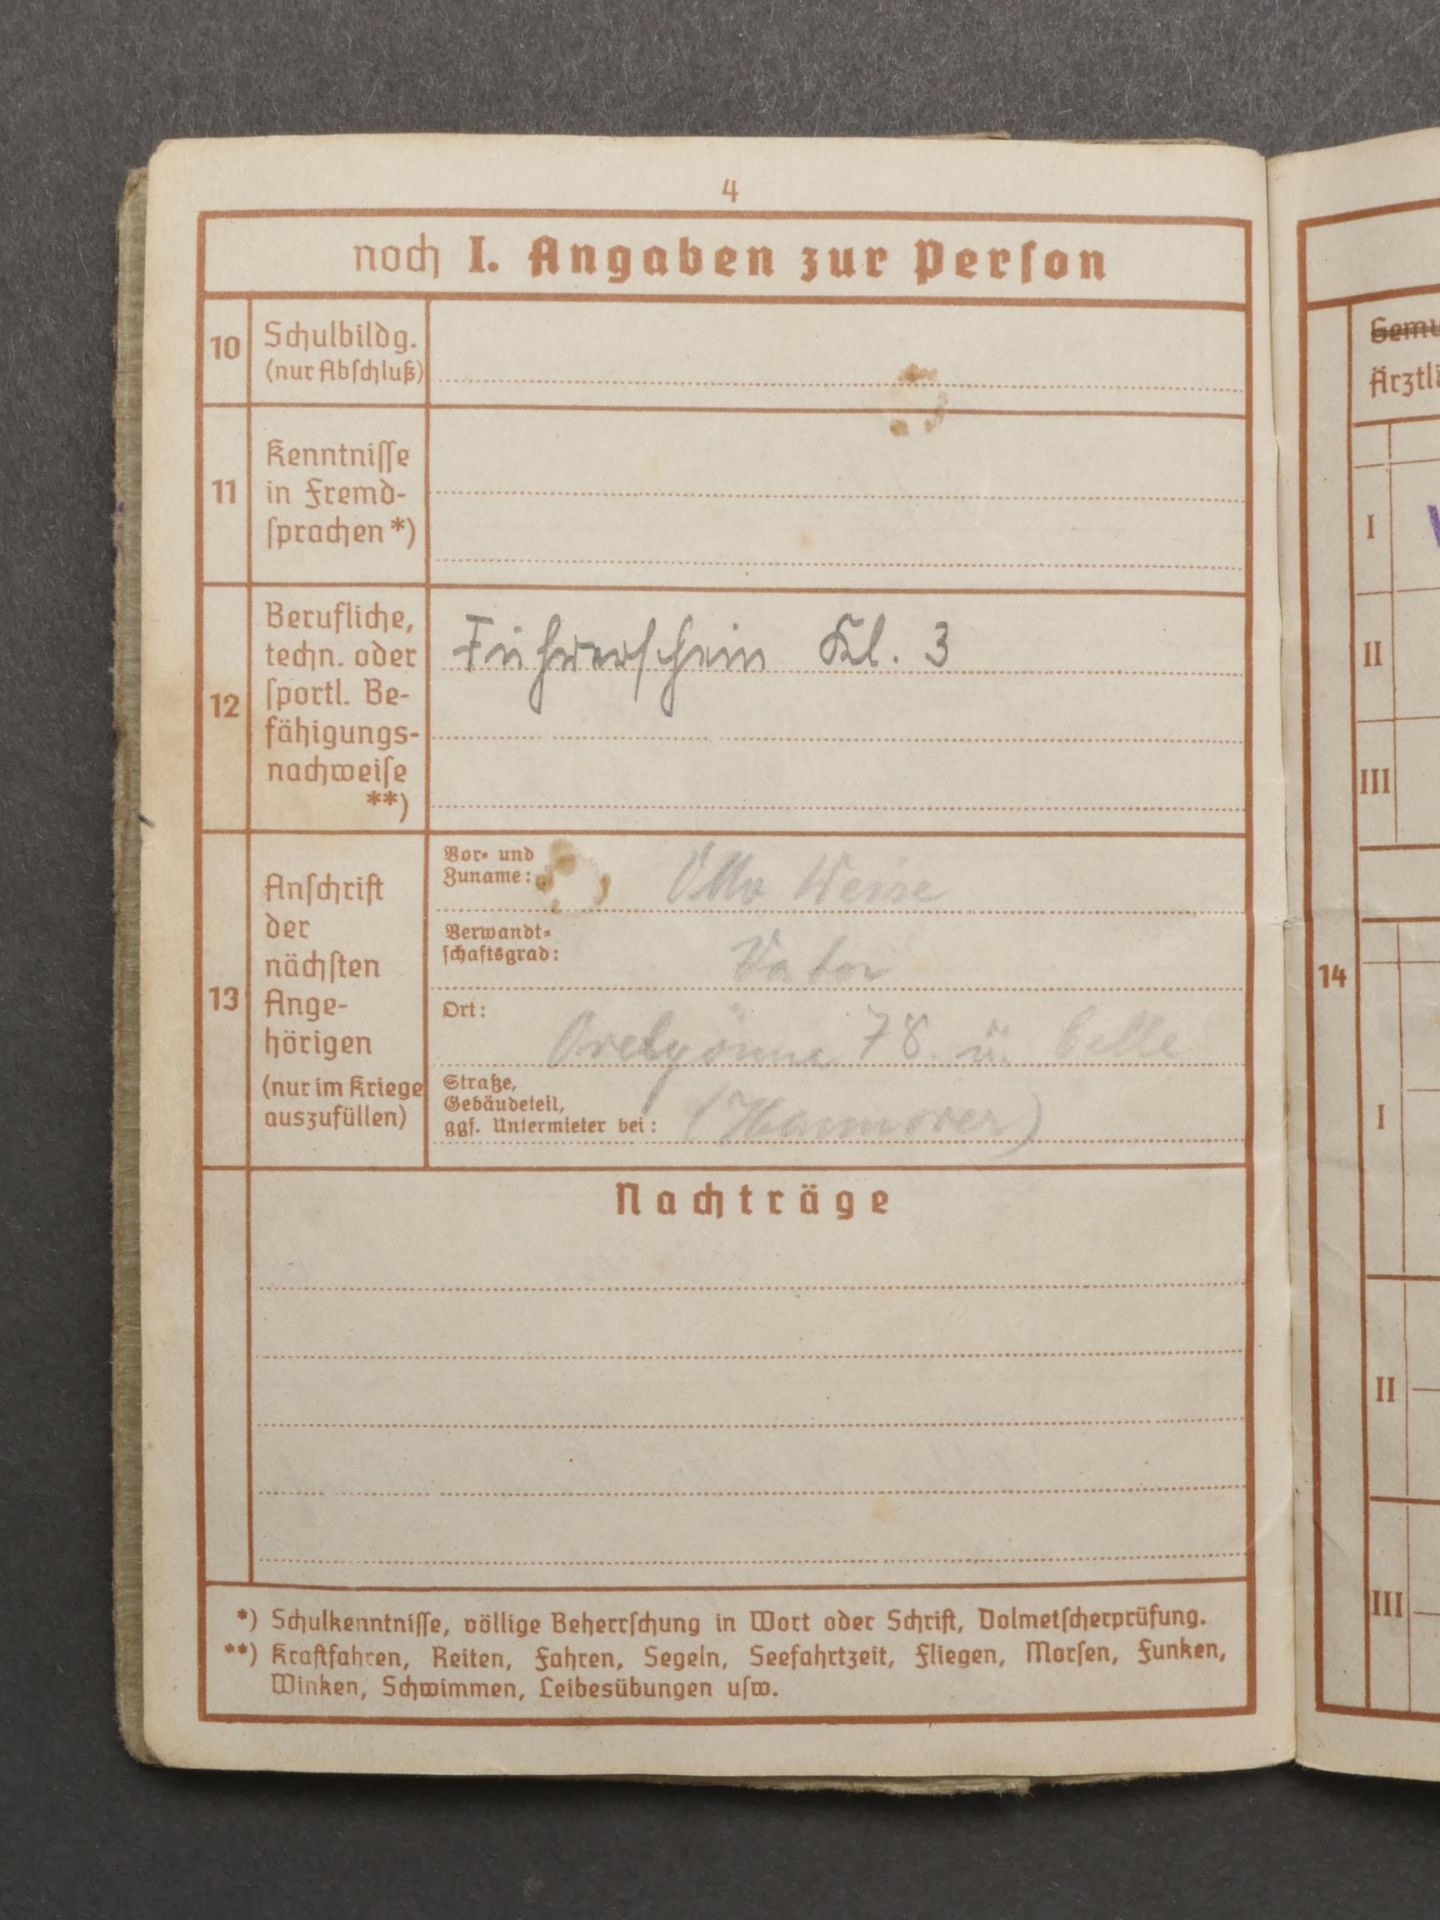 4
noch I. Angaben zur Person
10
Schulbildg.
(nur Abschluß)
11
Kenntnisse
in Fremd-
sprachen *)
12
Berufliche,
techn. oder
sportl. Be-
fähigungs-
nachweise
**)
Führerschein Kl. 3
13
Anschrift
der
nächsten
Ange-
hörigen
(nur im Kriege
auszufüllen)
Vor- und
Zuname:
Otto Weise
Verwandt-
schaftsgrad:
Vater
Ort:
78. ü. Celle
Straße,
Gebäudeteil,
ggf. Untermieter bei:
(Hannover)
Nachträge
*) Schulkenntnisse, völlige Beherrschung in Wort oder Schrift, Dolmetscherprüfung.
**) Kraftfahren, Reiten, Fahren, Segeln, Seefahrtzeit, Fliegen, Morsen, Funken,
Winken, Schwimmen, Leibesübungen usw.
14
I
II
III
I
II
III